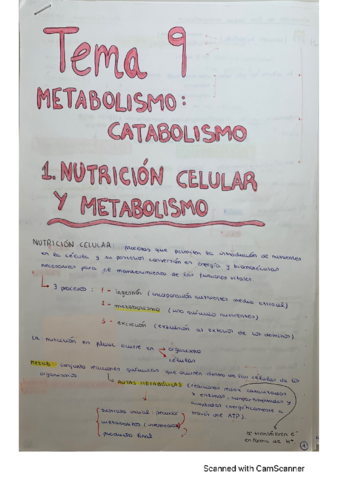 Tema 9
METABOLISMO:
CATABOLISMO
1. NUTRICIÓN CELULAR
Y METABOLISMO
NUTRICIÓN CELULAR: procesos que permiten la introducción de nutrientes
en la célula y su posterior conversión en energía y biomoléculas
necesarias para el mantenimiento de las funciones vitales
3 procesos: 1 - ingestión (incorporación nutrientes medio
2 - metabolismo (uso químico nutrientes)
3 - excreción (expulsión al exterior de los desechos)
La nutrición en ocurre en organismo
células
conjunto reacciones químicas que ocurren dentro de las células de los
organismos
RUTAS METABÓLICAS (reacciones
a enzimas,
energéticamente a
través del ATP).
inicial: sustrato
metabolitos
producto final
se transfieren e-
en forma de H+
Scanned with CamScanner